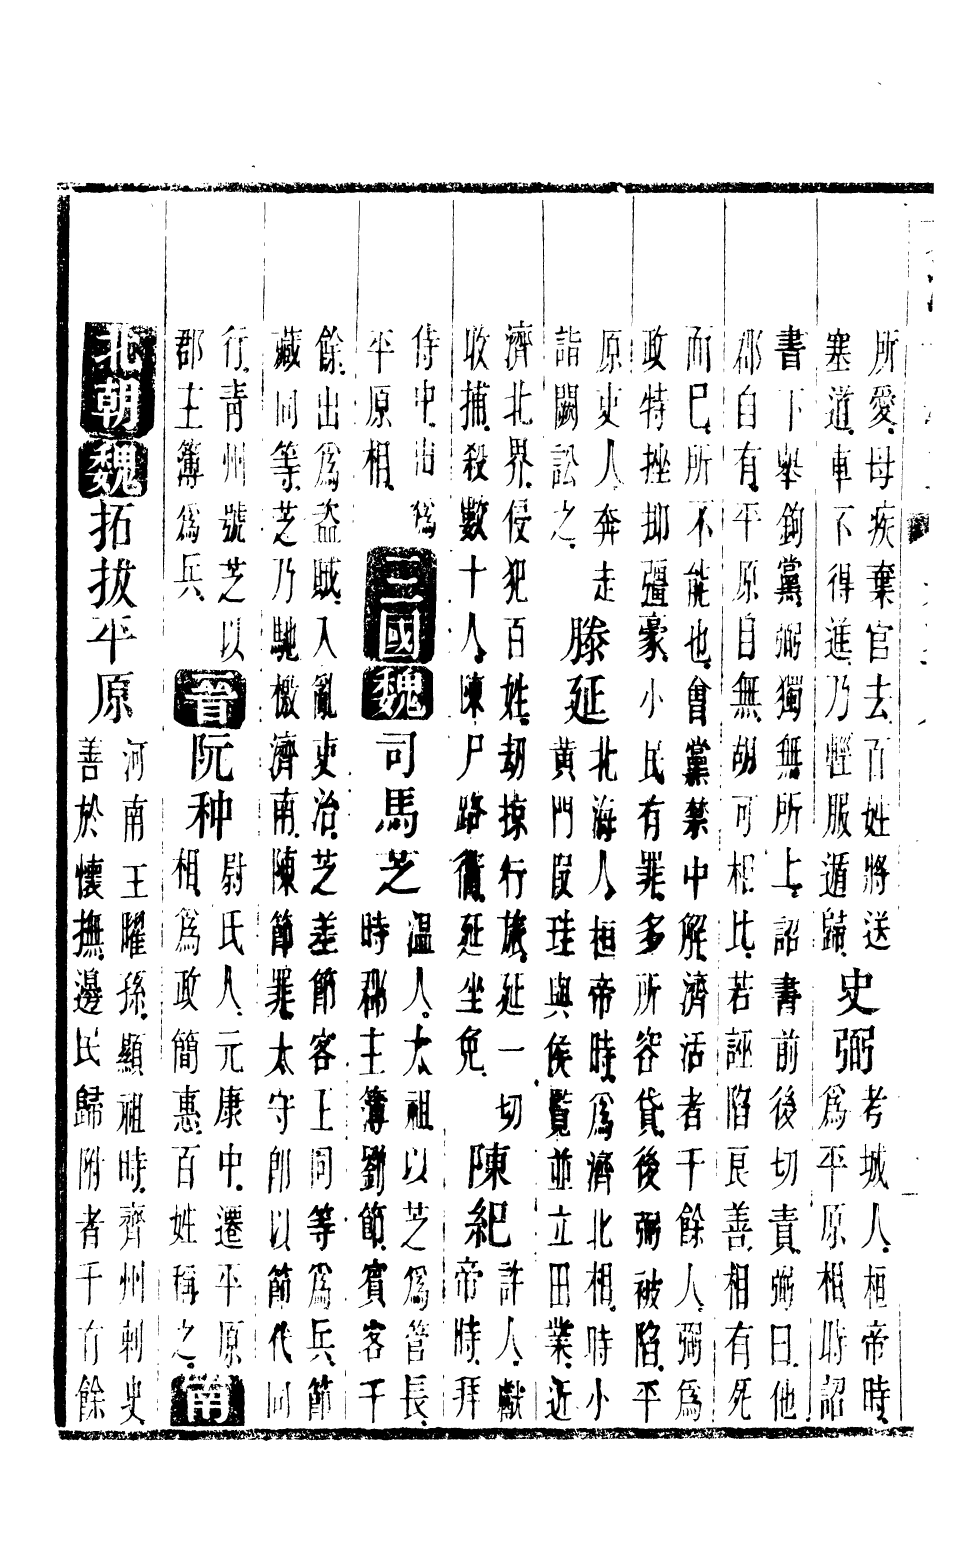 所愛母疾棄官去百姓將送
塞道車不得進乃輕服遁歸
史弼
考城人桓帝時
為平原相時詔
書下舉鉤黨弼獨無所上詔書前後切責弼曰他
郡自有平原自無胡可相比若誣陷良善相有死
而已所不能也會黨禁中解濟活者千餘人弼為
政特挫抑彊豪小民有罪多所容貸後弼被陷平
原吏人奔走
詣闕訟之
滕延
北海人桓帝時為濟北相時小
黃門段珪與侯覽並立田業近
濟北界侵犯百姓劫掠行旅延一切
收捕殺數十人陳尸路衢延坐免
陳紀
許人獻
帝時拜
侍中出為
平原相
三國魏
司馬芝
溫人太祖以芝為管長
時郡主簿劉節賓客千
餘出為盜賊入亂吏治芝差節客王同等為兵節
藏同等芝乃馳檄濟南陳節罪太守即以節代同
行青州號芝以
郡主簿為兵
晉
阮种
尉氏人元康中遷平原
相為政簡惠百姓稱之
南
北朝魏
拓拔平原
河南王曜孫顯祖時齊州刺史
善於懷撫邊民歸附者千有餘